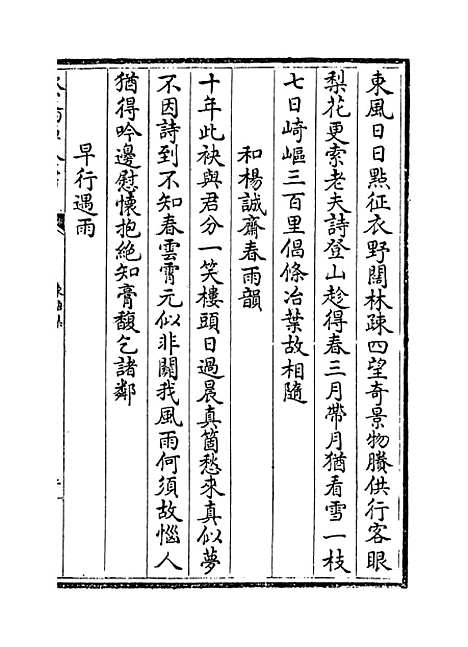 東風日日點征衣野闊林疎四望奇景物賸供行客眼
梨花更索老夫詩登山趁得春三月帶月猶看雪一枝
七日崎嶇三百里倡條冶葉故相隨
和楊誠齋春雨韻
十年此袂與君分一笑樓頭日過晨真箇愁來真似夢
不因詩到不知春雲霄元似非關我風雨何須故惱人
猶得吟邊慰懷抱絶知膏馥乞諸鄰
早行遇雨